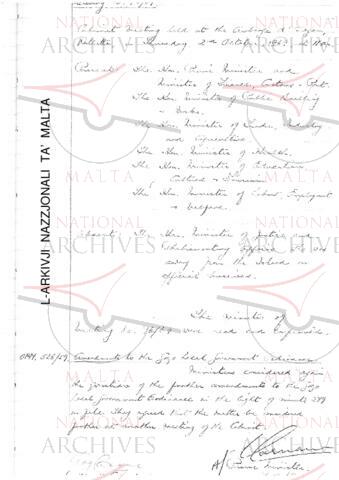 Cabinet meeting held at the Auberge d'Aragon,
Valletta, Thursday 2nd October 1969 at
Present: The Hon. Prime Minister and
Minister of Finance, Customs & Port.
The Hon. Minister of Public Building
& Works.
The Hon. Minister of Trade, Industry
and Agriculture
The Hon. Minister of Health.
The Hon. Minister of Education
Culture & Tourism
The Hon. Minister of Labour, Employment
& Welfare.
Absent: The Hon. Minister of Justice and
Parliamentary Affairs
away from the Island on
official business.
The minutes of
meeting No. 36/69 were read and confirmed.
OPM. 526/59 Amendments to the Gozo Local Government Ordinance
Ministers considered again
the provisions of the further amendments to the Gozo
Local Government Ordinance in the light of minute 289
in file. They agreed that the matter be considered
further at another meeting of the Cabinet.
A/Prime Minister
L-ARKIVJI NAZZJONALI TA' MALTA
NATIONAL
ARCHIVES